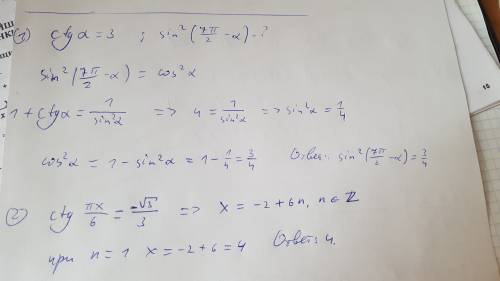 ① ctgα = 3 ; sin²(7π/2 − α) − ?
sin²(7π/2 − α) = cos²α
1 + ctgα = 1/sin²α => 4 = 1/sin²α => sin²α = 1/4
cos²α = 1 − sin²α = 1 − 1/4 = 3/4 Ответ: sin²(7π/2 − α) = 3/4
② ctg πx/6 = −√3/3 => x = −2 + 6n, n ∈ Z
при n = 1 x = −2 + 6 = 4 Ответ: 4.